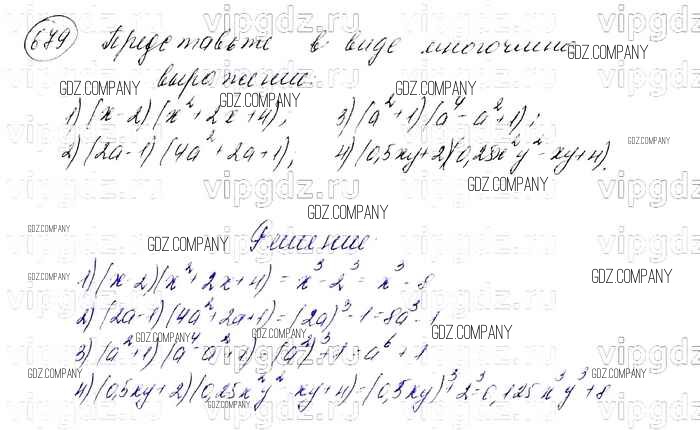 679 Представьте в виде многочлена
выражение:
1) (x-2)(x²+2x+4); 3) (a²+1)(a⁴-a²+1);
2) (2a-1)(4a²+2a+1); 4) (0,5xy+2)(0,25x²y²-xy+4).
Решение:
1) (x-2)(x²+2x+4)=x³-2³=x³-8
2) (2a-1)(4a²+2a+1)=(2a)³-1=8a³-1
3) (a²+1)(a⁴-a²+1)=(a²)³+1=a⁶+1
4) (0,5xy+2)(0,25x²y²-xy+4)=(0,5xy)³+2³=0,125x³y³+8
vipgdz.ru
GDZ.COMPANY